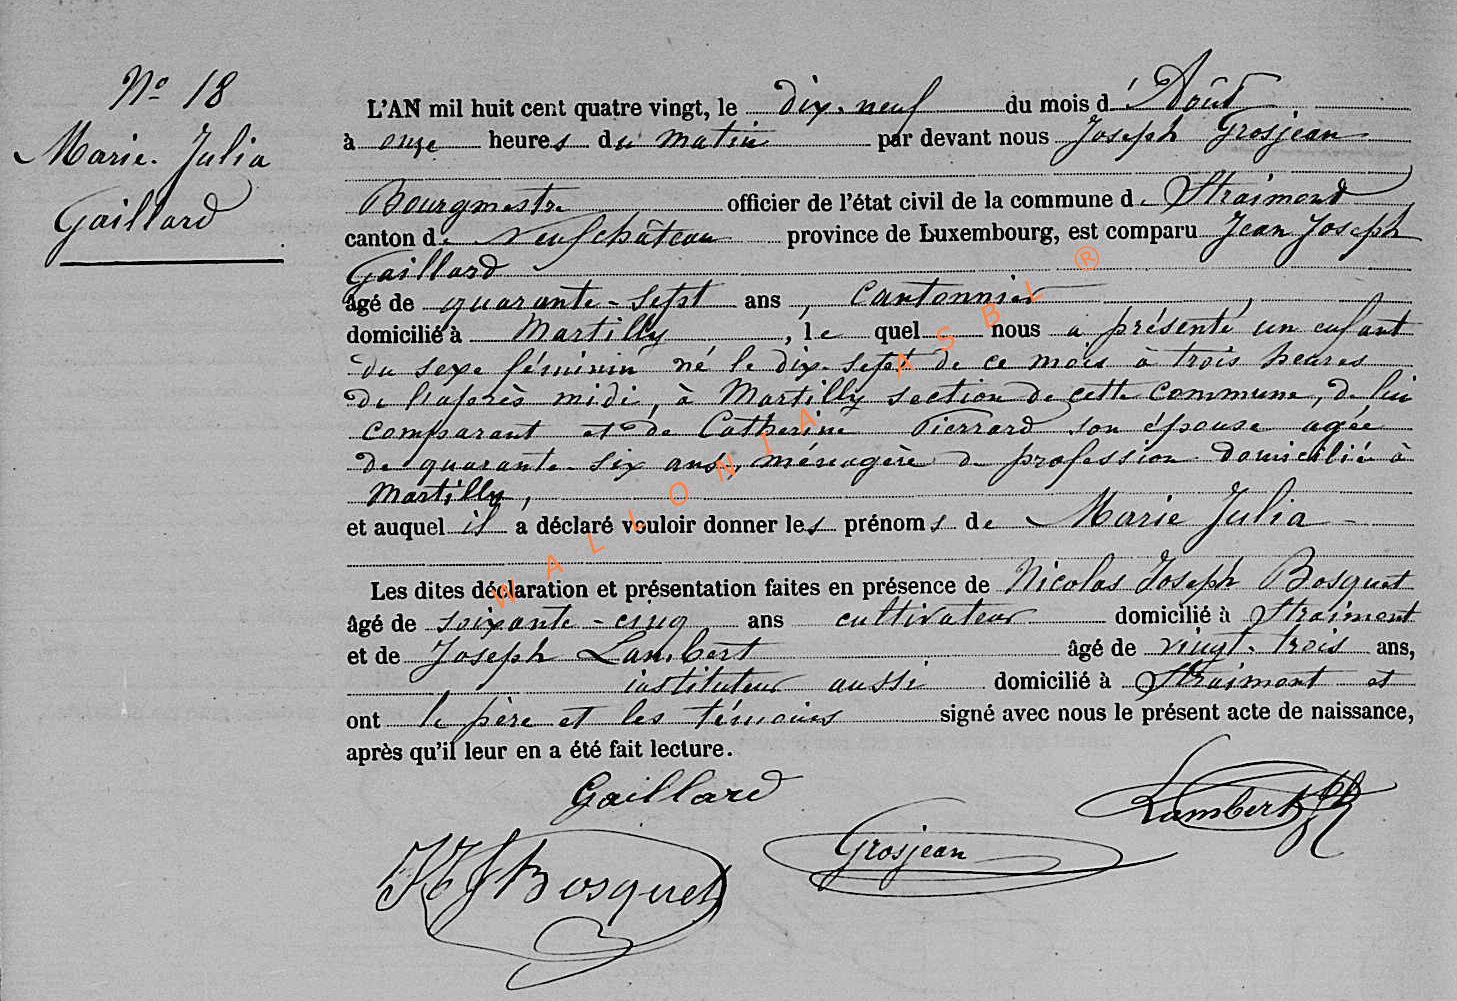 N° 18
Marie. Julia
Gaillard
L'AN mil huit cent quatre vingt, le dix-neuf du mois d'Août
à onze heures du matin par devant nous Joseph Grosjean
Bourgmestre officier de l'état civil de la commune de Straimont
canton de Neufchâteau province de Luxembourg, est comparu Jean Joseph
Gaillard
âgé de quarante-sept ans, cantonnier
domicilié à Martilly, le quel nous a présenté un enfant
du sexe féminin né le dix-sept de ce mois à trois heures
de l'après midi, à Martilly section de cette commune, de lui
comparant et de Catherine Pierrard son épouse agée
de quarante-six ans, ménagère de profession domiciliée à
Martilly,
et auquel il a déclaré vouloir donner les prénoms de Marie Julia
Les dites déclaration et présentation faites en présence de Nicolas Joseph Bosquet
âgé de soixante-cinq ans cultivateur domicilié à Straimont
et de Joseph Lambert âgé de vingt-trois ans,
instituteur aussi domicilié à Straimont et
ont le père et les témoins signé avec nous le présent acte de naissance,
après qu'il leur en a été fait lecture.
Gaillard
Lambert
Grosjean
Bosquet
WALLONIA ASBL ®